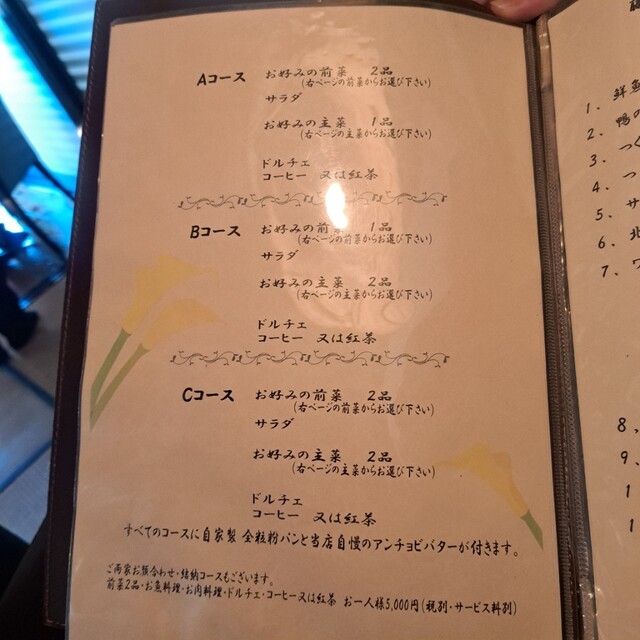 Aコース お好みの前菜 2品
(右ページの前菜からお選び下さい)
サラダ
お好みの主菜 1品
(右ページの主菜からお選び下さい)
ドルチェ
コーヒー 又は紅茶
Bコース お好みの前菜 1品
(右ページの前菜からお選び下さい)
サラダ
お好みの主菜 2品
(右ページの主菜からお選び下さい)
ドルチェ
コーヒー 又は紅茶
Cコース お好みの前菜 2品
(右ページの前菜からお選び下さい)
サラダ
お好みの主菜 2品
(右ページの主菜からお選び下さい)
ドルチェ
コーヒー 又は紅茶
すべてのコースに自家製 全粒粉パンと当店自慢のアンチョビバターが付きます。
ご両家お顔合わせ・結納コースもございます。
前菜2品・お魚料理・お肉料理・ドルチェ・コーヒー又は紅茶 お一人様5,000円(税別・サービス料別)
1. 鮮
2. 鴨の
3. つ
4. つ
5. サ
6. 北
7. ワ
8,
9,
1
1